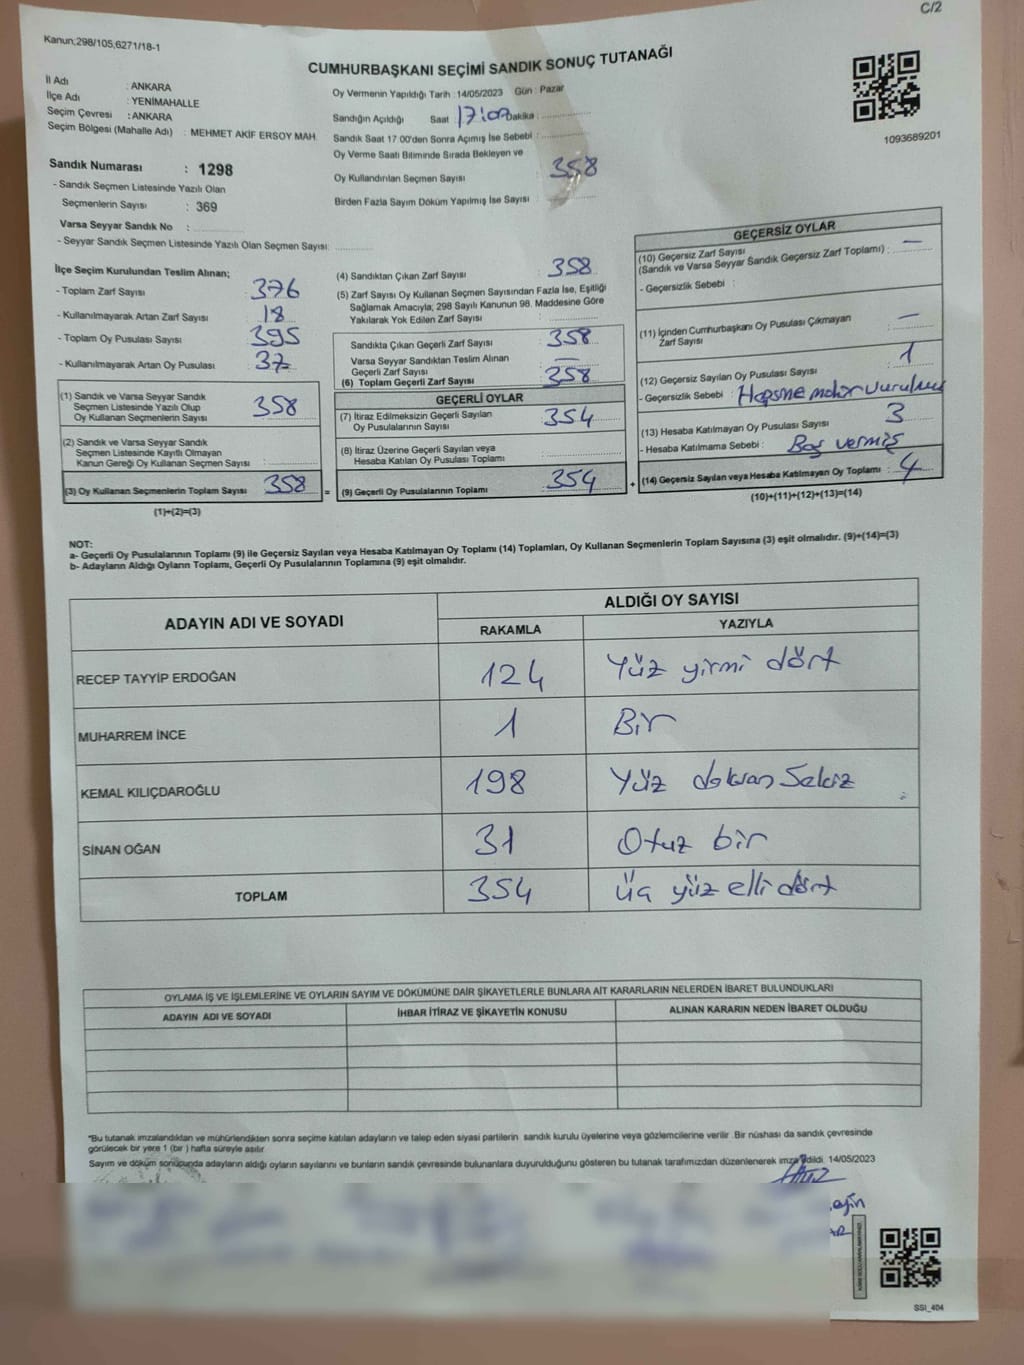 C/2
Kanun;298/105,6271/18-1
CUMHURBAŞKANI SEÇİMİ SANDIK SONUÇ TUTANAĞI
İl Adı : ANKARA
İlçe Adı : YENİMAHALLE
Seçim Çevresi : ANKARA
Seçim Bölgesi (Mahalle Adı) : MEHMET AKİF ERSOY MAH.
Sandık Numarası : 1298
- Sandık Seçmen Listesinde Yazılı Olan
Seçmenlerin Sayısı : 369
Varsa Seyyar Sandık No :
- Seyyar Sandık Seçmen Listesinde Yazılı Olan Seçmen Sayısı:
Oy Vermenin Yapıldığı Tarih :14/05/2023 Gün : Pazar
Sandığın Açıldığı Saat : 17:07 Dakika :
Sandık Saat 17:00'den Sonra Açımış İse Sebebi :
Oy Verme Saati Bitiminde Sırada Bekleyen ve
Oy Kullandırılan Seçmen Sayısı : 358
Birden Fazla Sayım Döküm Yapılmış İse Sayısı :
1093689201
İlçe Seçim Kurulundan Teslim Alınan;
- Toplam Zarf Sayısı : 376
- Kullanılmayarak Artan Zarf Sayısı : 18
- Toplam Oy Pusulası Sayısı : 395
- Kullanılmayarak Artan Oy Pusulası : 37
(1) Sandık ve Varsa Seyyar Sandık
Seçmen Listesinde Yazılı Olup
Oy Kullanan Seçmenlerin Sayısı : 358
(2) Sandık ve Varsa Seyyar Sandık
Seçmen Listesinde Kayıtlı Olmayan
Kanun Gereği Oy Kullanan Seçmen Sayısı :
(3) Oy Kullanan Seçmenlerin Toplam Sayısı : 358 =
(1)+(2)=(3)
(4) Sandıktan Çıkan Zarf Sayısı : 358
(5) Zarf Sayısı Oy Kullanan Seçmen Sayısından Fazla İse, Eşitliği
Sağlamak Amacıyla; 298 Sayılı Kanunun 98. Maddesine Göre
Yakılarak Yok Edilen Zarf Sayısı :
Sandıkta Çıkan Geçerli Zarf Sayısı : 358
Varsa Seyyar Sandıktan Teslim Alınan
Geçerli Zarf Sayısı : —
(6) Toplam Geçerli Zarf Sayısı : 358
GEÇERLİ OYLAR
(7) İtiraz Edilmeksizin Geçerli Sayılan
Oy Pusulalarının Sayısı : 354
(8) İtiraz Üzerine Geçerli Sayılan veya
Hesaba Katılan Oy Pusulası Toplamı :
(9) Geçerli Oy Pusulalarının Toplamı : 354 +
GEÇERSİZ OYLAR
(10) Geçersiz Zarf Sayısı
(Sandık ve Varsa Seyyar Sandık Geçersiz Zarf Toplamı) : —
- Geçersizlik Sebebi :
(11) İçinden Cumhurbaşkanı Oy Pusulası Çıkmayan
Zarf Sayısı : —
(12) Geçersiz Sayılan Oy Pusulası Sayısı : 1
- Geçersizlik Sebebi :
(13) Hesaba Katılmayan Oy Pusulası Sayısı : 3
- Hesaba Katılmama Sebebi : Boş vermiş
(14) Geçersiz Sayılan veya Hesaba Katılmayan Oy Toplamı : 4
(10)+(11)+(12)+(13)=(14)
NOT:
a- Geçerli Oy Pusulalarının Toplamı (9) ile Geçersiz Sayılan veya Hesaba Katılmayan Oy Toplamı (14) Toplamları, Oy Kullanan Seçmenlerin Toplam Sayısına (3) eşit olmalıdır. (9)+(14)=(3)
b- Adayların Aldığı Oyların Toplamı, Geçerli Oy Pusulalarının Toplamına (9) eşit olmalıdır.
ADAYIN ADI VE SOYADI ALDIĞI OY SAYISI
RAKAMLA YAZIYLA
RECEP TAYYİP ERDOĞAN 124 Yüz yirmi dört
MUHARREM İNCE 1 Bir
KEMAL KILIÇDAROĞLU 198 Yüz doksan Sekiz
SİNAN OĞAN 31 Otuz bir
TOPLAM 354 Üç yüz elli dört
OYLAMA İŞ VE İŞLEMLERİNE VE OYLARIN SAYIM VE DÖKÜMÜNE DAİR ŞİKAYETLERLE BUNLARA AİT KARARLARIN NELERDEN İBARET BULUNDUKLARI
ADAYIN ADI VE SOYADI İHBAR İTİRAZ VE ŞİKAYETİN KONUSU ALINAN KARARIN NEDEN İBARET OLDUĞU
*Bu tutanak imzalandıktan ve mühürlendikten sonra seçime katılan adayların ve talep eden siyasi partilerin sandık kurulu üyelerine veya gözlemcilerine verilir .Bir nüshası da sandık çevresinde
görülecek bir yere 1 (bir ) hafta süreyle asılır
Sayım ve döküm sonucunda adayların aldığı oyların sayılarını ve bunların sandık çevresinde bulunanlara duyurulduğunu gösteren bu tutanak tarafımızdan düzenlenerek imza edildi. 14/05/2023
SSI_404